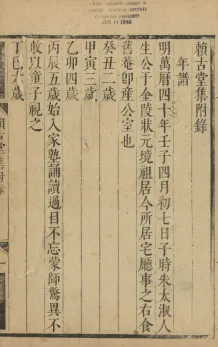 賴古堂集附錄
年譜
明萬曆四十年壬子四月初七日子時朱太淑人
生公于金陵狀元境祖居今所居宅廳事之右食
舊菴卽産公室也
癸丑二歲
甲寅三歲
乙卯四歲
丙辰五歲始入家塾誦讀過目不忘蒙師驚異不
敢以童子視之
丁巳六歲